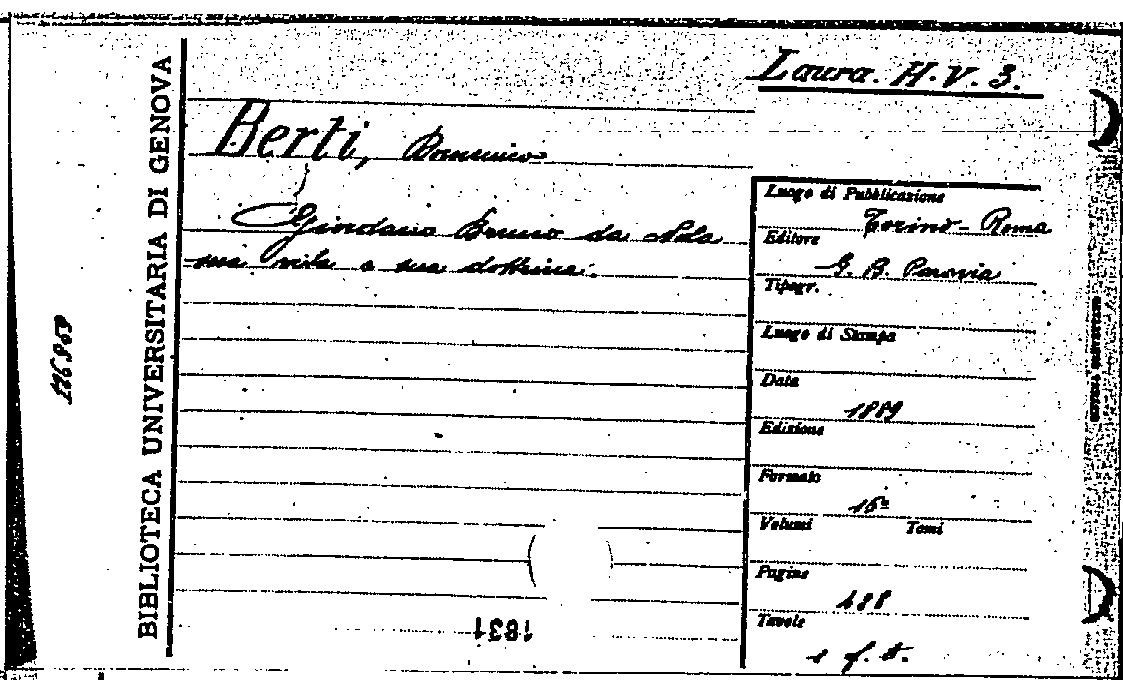 Laura. H. V. 3.
Berti, Domenico
Giordano Bruno da Nola
sua vita e sua dottrina.
BIBLIOTECA UNIVERSITARIA DI GENOVA
Luogo di Pubblicazione
Torino - Roma
Editore
G. B. Paravia
Tipogr.
Luogo di Stampa
Data
1889
Edizione
Formato
16º
Volumi Tomi
Pagine
488
Tavole
1 f. t.
1831